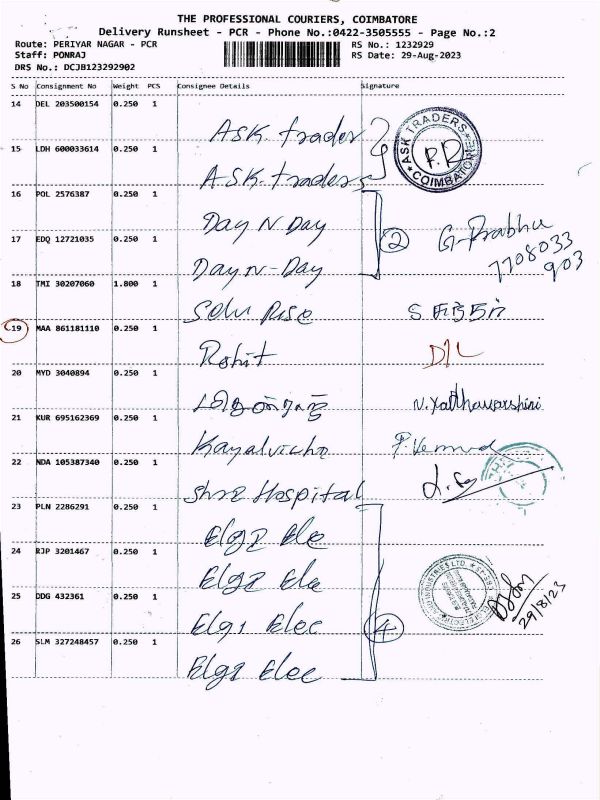 THE PROFESSIONAL COURIERS, COIMBATORE
Delivery Runsheet - PCR - Phone No.:0422-3505555 - Page No.:2
Route: PERIYAR NAGAR - PCR RS No.: 1232929
Staff: PONRAJ RS Date: 29-Aug-2023
DRS No.: DCJB123292902
S No Consignment No Weight PCS Consignee Details Signature
14 DEL 203500154 0.250 1 ASK. trader
15 LDH 600033614 0.250 1 ASK. traders
ASK TRADERS COIMBATORE
16 POL 2576387 0.250 1 Day N Day
17 EDQ 12721035 0.250 1 Day N-Day
2 G-Prabhu
7708033
903
18 TMI 30207060 1.800 1
19 MAA 861181110 0.250 1 Rohit D/L
20 MYD 3040894 0.250 1
21 KUR 695162369 0.250 1
22 NDA 105387340 0.250 1 Shre Hospital
23 PLN 2286291 0.250 1 Elgi Ele
24 RJP 3201467 0.250 1 Elgi Ele
25 DDG 432361 0.250 1 Elgi Elec
4
29/8/23
26 SLM 327248457 0.250 1 Elgi Elec